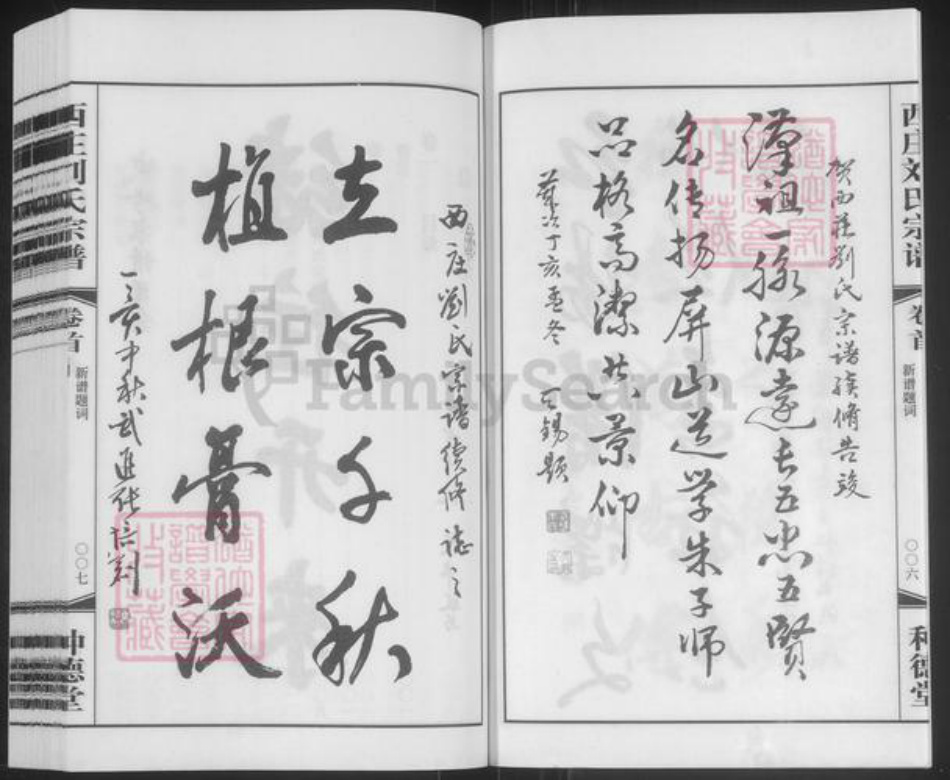 西庄刘氏宗谱
卷首
新谱题词
〇〇六
种德堂
贺西莊劉氏宗谱续脩告竣
漢祖一脉源远长五忠五賢
名传扬屏山道学朱子师
品格高潔共景仰
歲次丁亥孟冬
锡题
FamilySearch
西庄劉氏宗谱续修誌之
立宗千秋
植根膏沃
丁亥中秋武進
西庄刘氏宗谱
卷首
新谱题词
〇〇七
种德堂